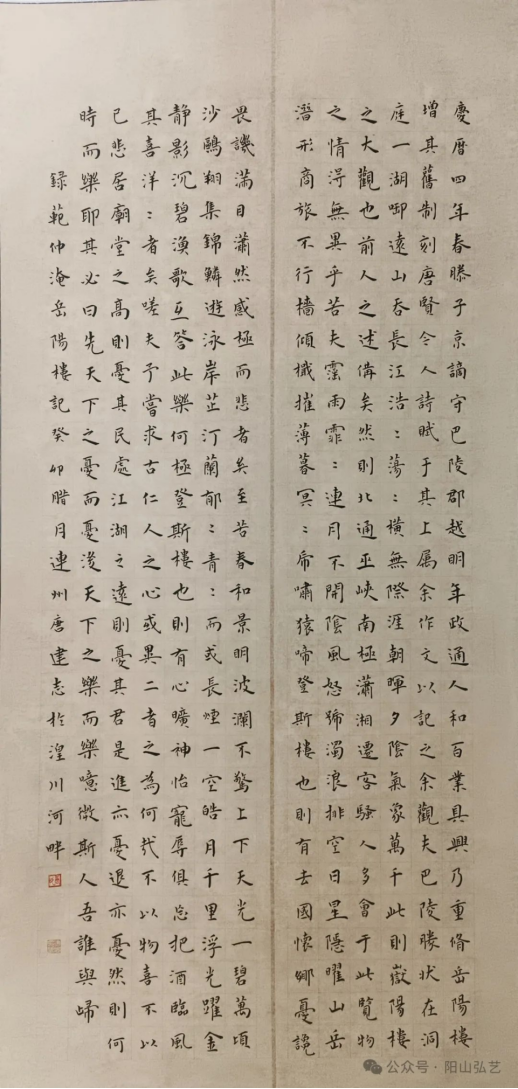 慶曆四年春滕子京謫守巴陵郡越明年政通人和百業具興乃重脩岳陽樓
增其舊制刻唐賢今人詩賦于其上属余作文以記之余觀夫巴陵勝状在洞
庭一湖啣遠山吞長江浩〻蕩〻橫無際涯朝暉夕陰氣象萬千此則嶽陽樓
之大觀也前人之述備矣然則北通巫峽南極瀟湘遷客騷人多會于此覽物
之情得無異乎若夫霪雨霏〻連月不開陰風怒號濁浪排空日星隱曜山岳
潛形商旅不行檣傾檝摧薄暮冥〻虎嘯猿啼登斯樓也則有去國懷鄉憂讒
畏譏滿目瀟然感極而悲者矣至若春和景明波瀾不驚上下天光一碧萬頃
沙鷗翔集錦鱗遊泳岸芷汀蘭郁〻青〻而或長煙一空皓月千里浮光躍金
静影沉碧漁歌互答此樂何極登斯樓也則有心曠神怡寵辱俱忘把酒臨風
其喜洋〻者矣嗟夫予嘗求古仁人之心或異二者之為何哉不以物喜不以
已悲居廟堂之高則憂其民處江湖之遠則憂其君是進亦憂退亦憂然則何
時而樂耶其必曰先天下之憂而憂後天下之樂而樂噫微斯人吾誰與歸
録範仲淹岳陽樓記癸卯腊月連州唐建志於湟川河畔
公众号·阳山弘艺